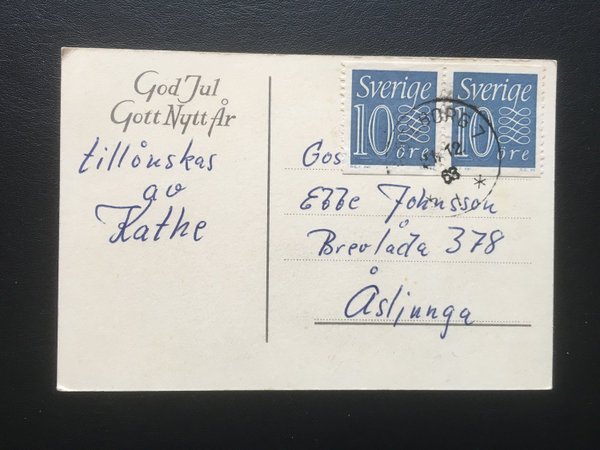 God Jul
Gott Nytt År
tillönskas
av
Kathe
Sverige
10 öre
Sverige
10 öre
BORG
12
63
Gos
Ebbe Johnsson
Brevlåda 378
Åsljunga